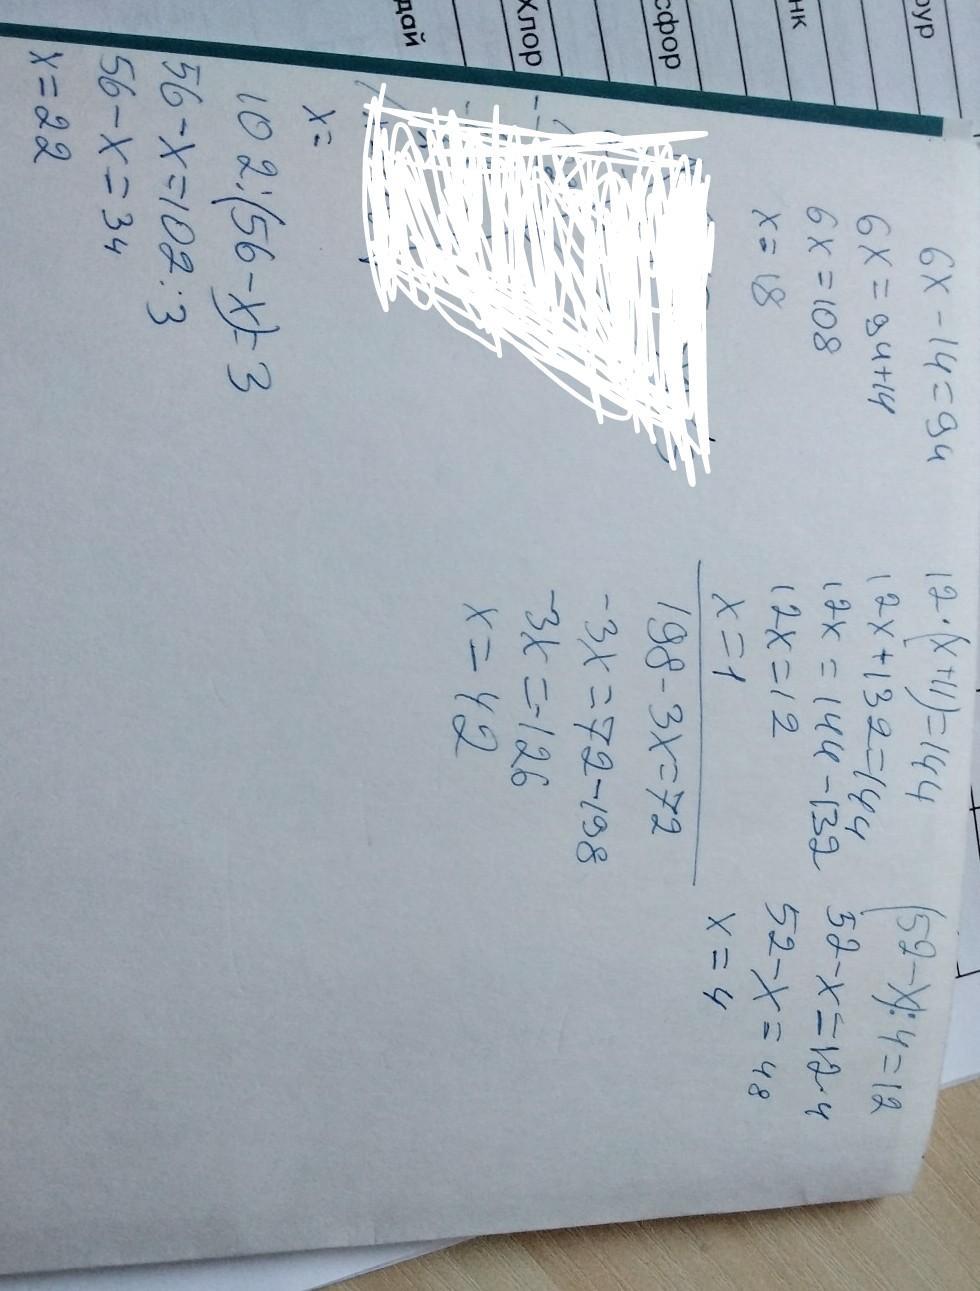 оур
нк
сфор
Хлор
дай
6x - 14 = 94
6x = 94+14
6x = 108
x = 18
12·(x+11)=144
12x+132=144
12x = 144-132
12x=12
x=1
(52-x):4=12
52-x=12·4
52-x=48
x=4
198-3x=72
-3x=72-198
-3x=-126
x=42
x=
102:(56-x)=3
56-x=102:3
56-x=34
x=22